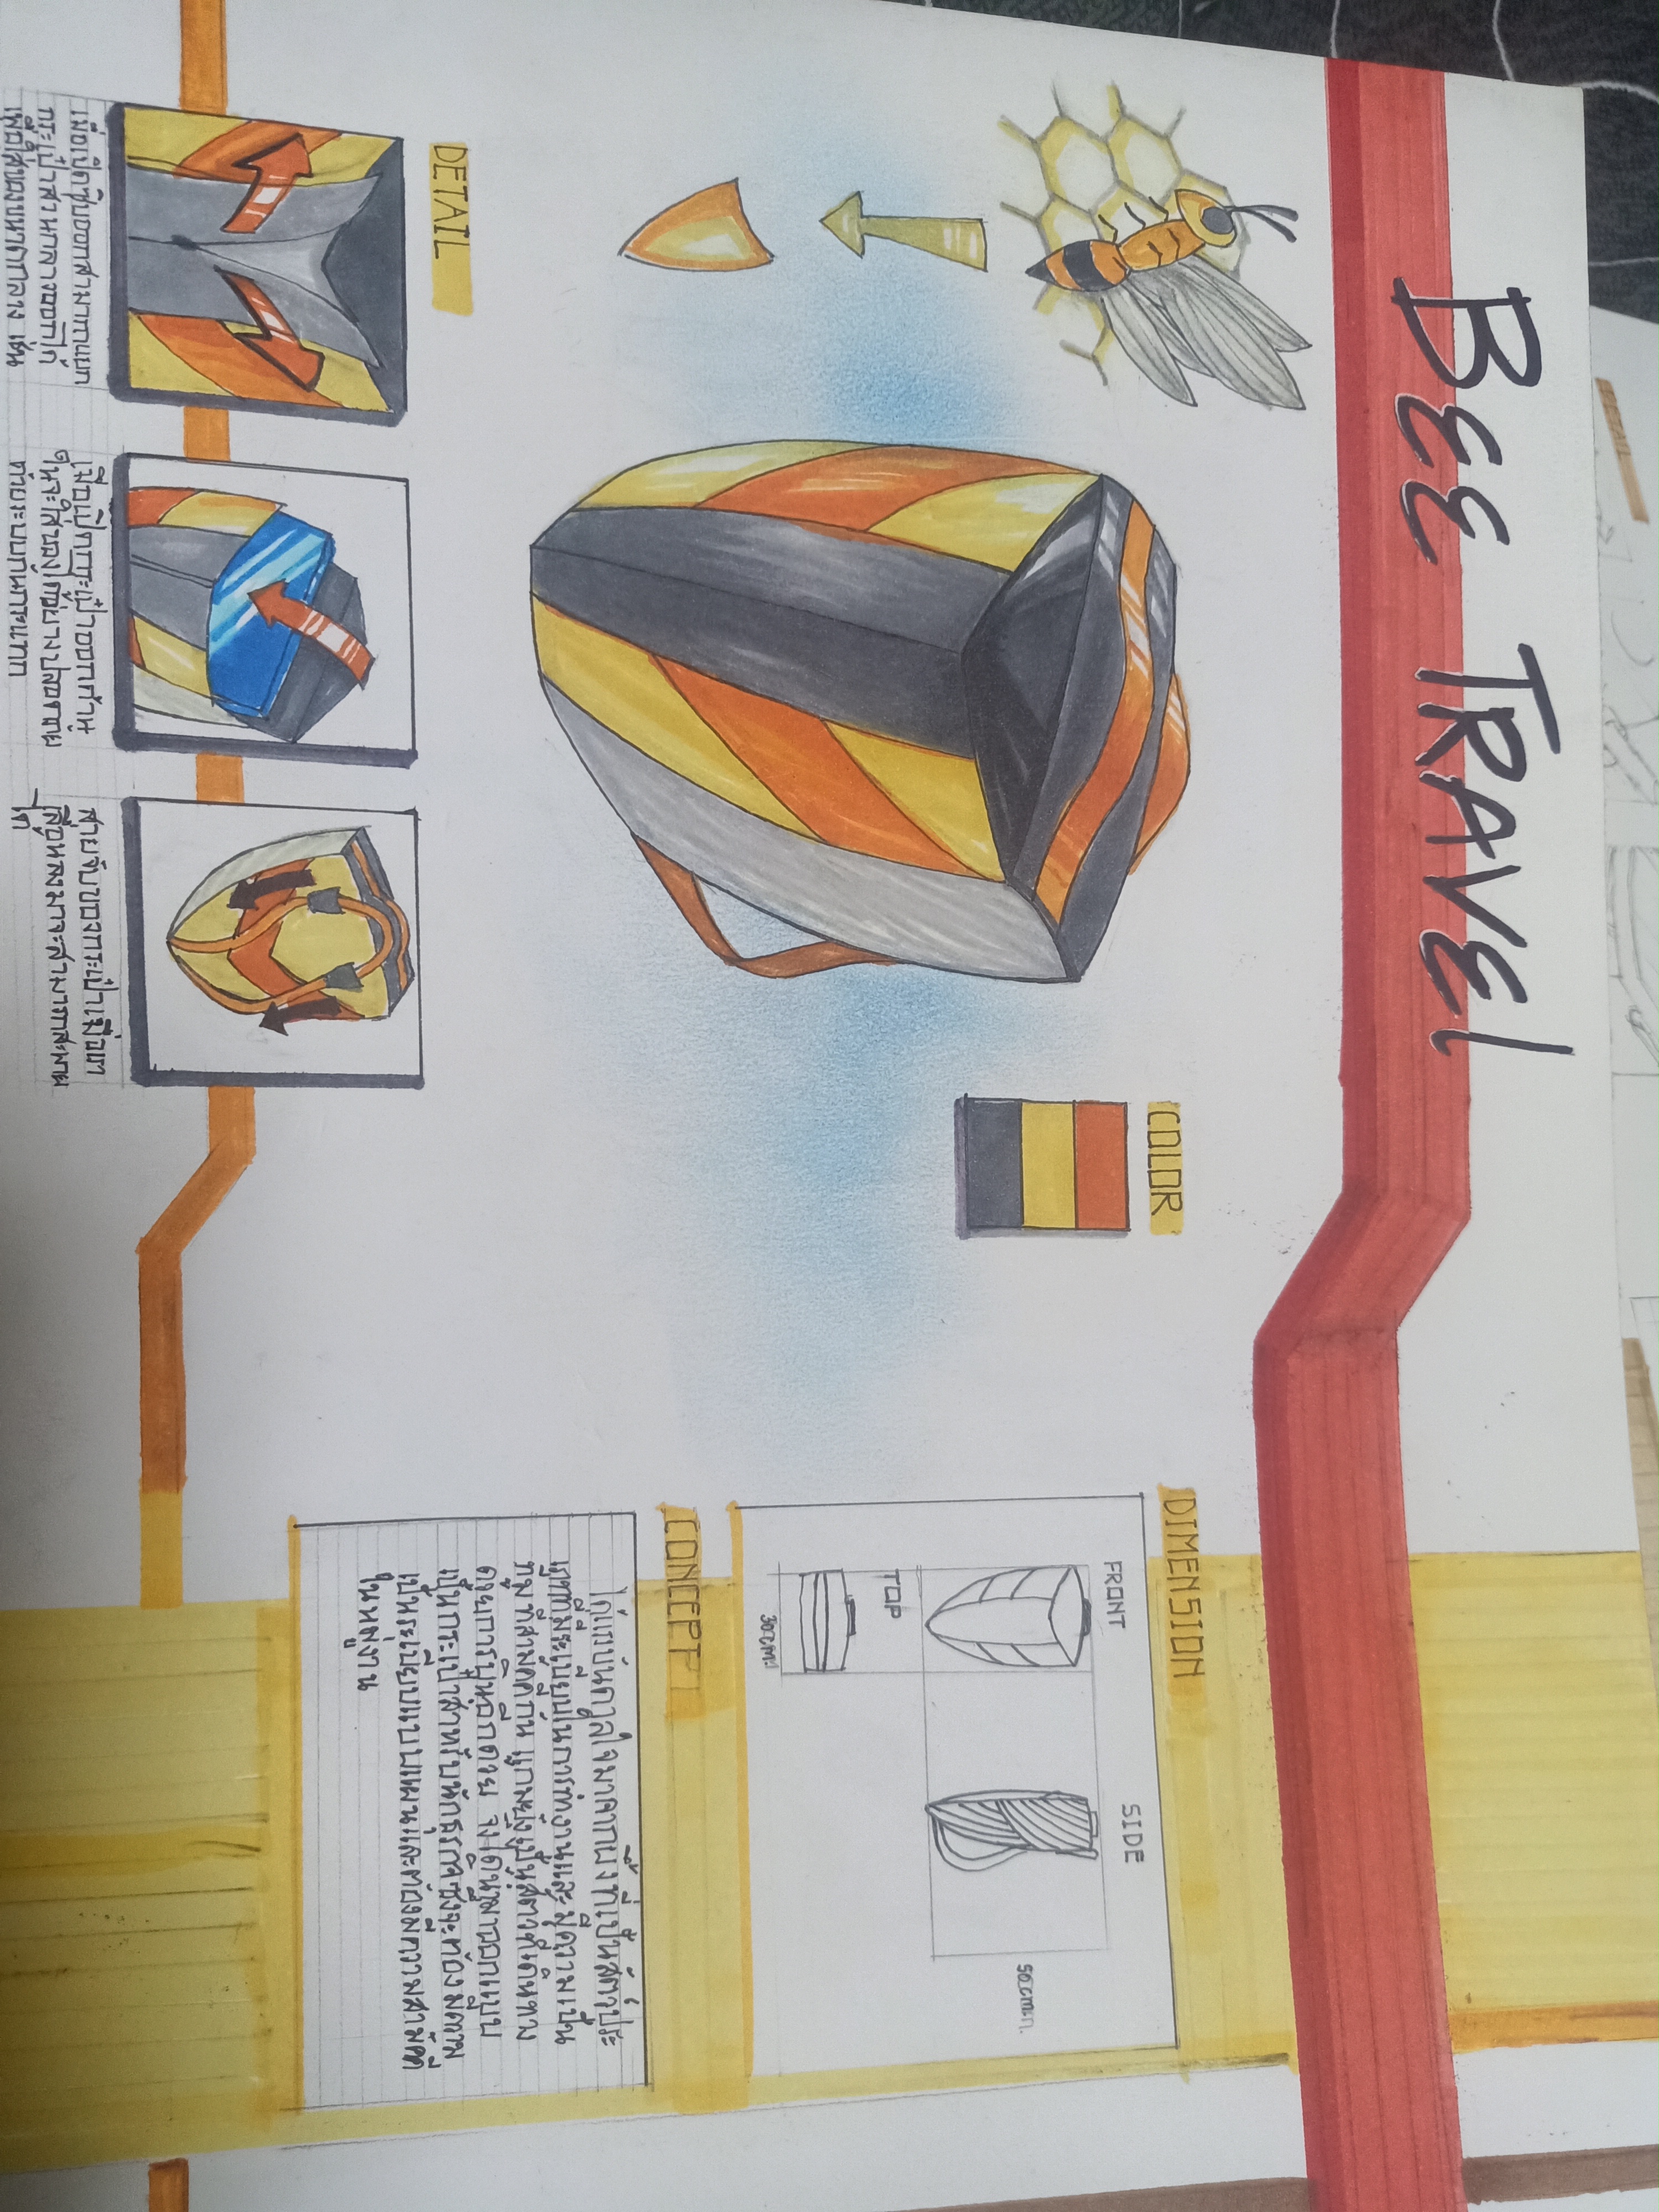 DETAIL
BEE TRAVEL
COLOR
DIMENSION
FRONT
SIDE
50 cm
TOP
30 cm.
CONCEPT
ได้แรงบันดาลใจมาจากผึ้งที่เป็นสัตว์ประ
เภทที่มีระเบียบในการทำงานและมีความเป็น
ทีมที่สามัคคีกัน แถมยังเป็นสัตว์ที่เดินทาง
ด้วยการบินอีกด้วย จึงได้นำมาออกแบบ
เป็นกระเป๋าสำหรับนักธุรกิจซึ่งจะต้องมีความ
เป็นระเบียบแบบแผนและต้องมีความสามัคคี
ในหมู่งาน
DETAIL
เมื่อเปิดซิบออกสามารถแยก
กระเป๋าส่วนกลางออกได้
เพื่อใส่ของขนาดกลาง เช่น
เมื่อเปิดกระเป๋าออกด้าน
ในจะใส่ของได้อย่างปลอดภัย
ด้วยระบบกันกระแทก
สายจับของกระเป๋าเมื่อเรา
เลื่อนลงมาจะสามารถสะพาย
ได้